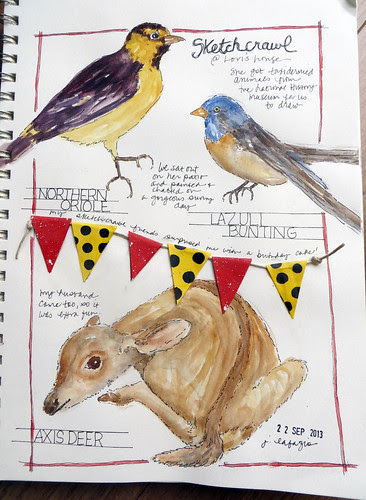 Sketchcrawl
@ Loris house
She got taxidermied
animals from
the national history
museum for us
to draw
We sat out
on her patio
and painted +
chatted on
a gorgeous sunny
day
NORTHERN
ORIOLE
LAZULI
BUNTING
my sketchcrawl friends surprised me with a birthday cake!
my husband
came too, so it
was extra fun
AXIS DEER
22 SEP 2013
j lafazio